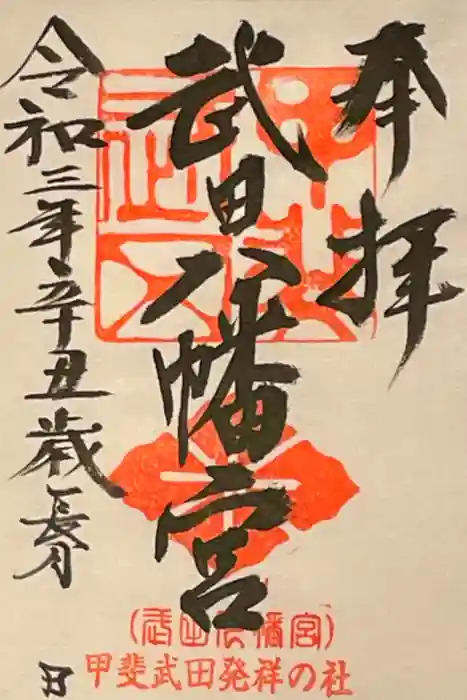 奉拝
武田八幡宮
令和三年辛丑歳
日
(武田八幡宮)
甲斐武田発祥の社